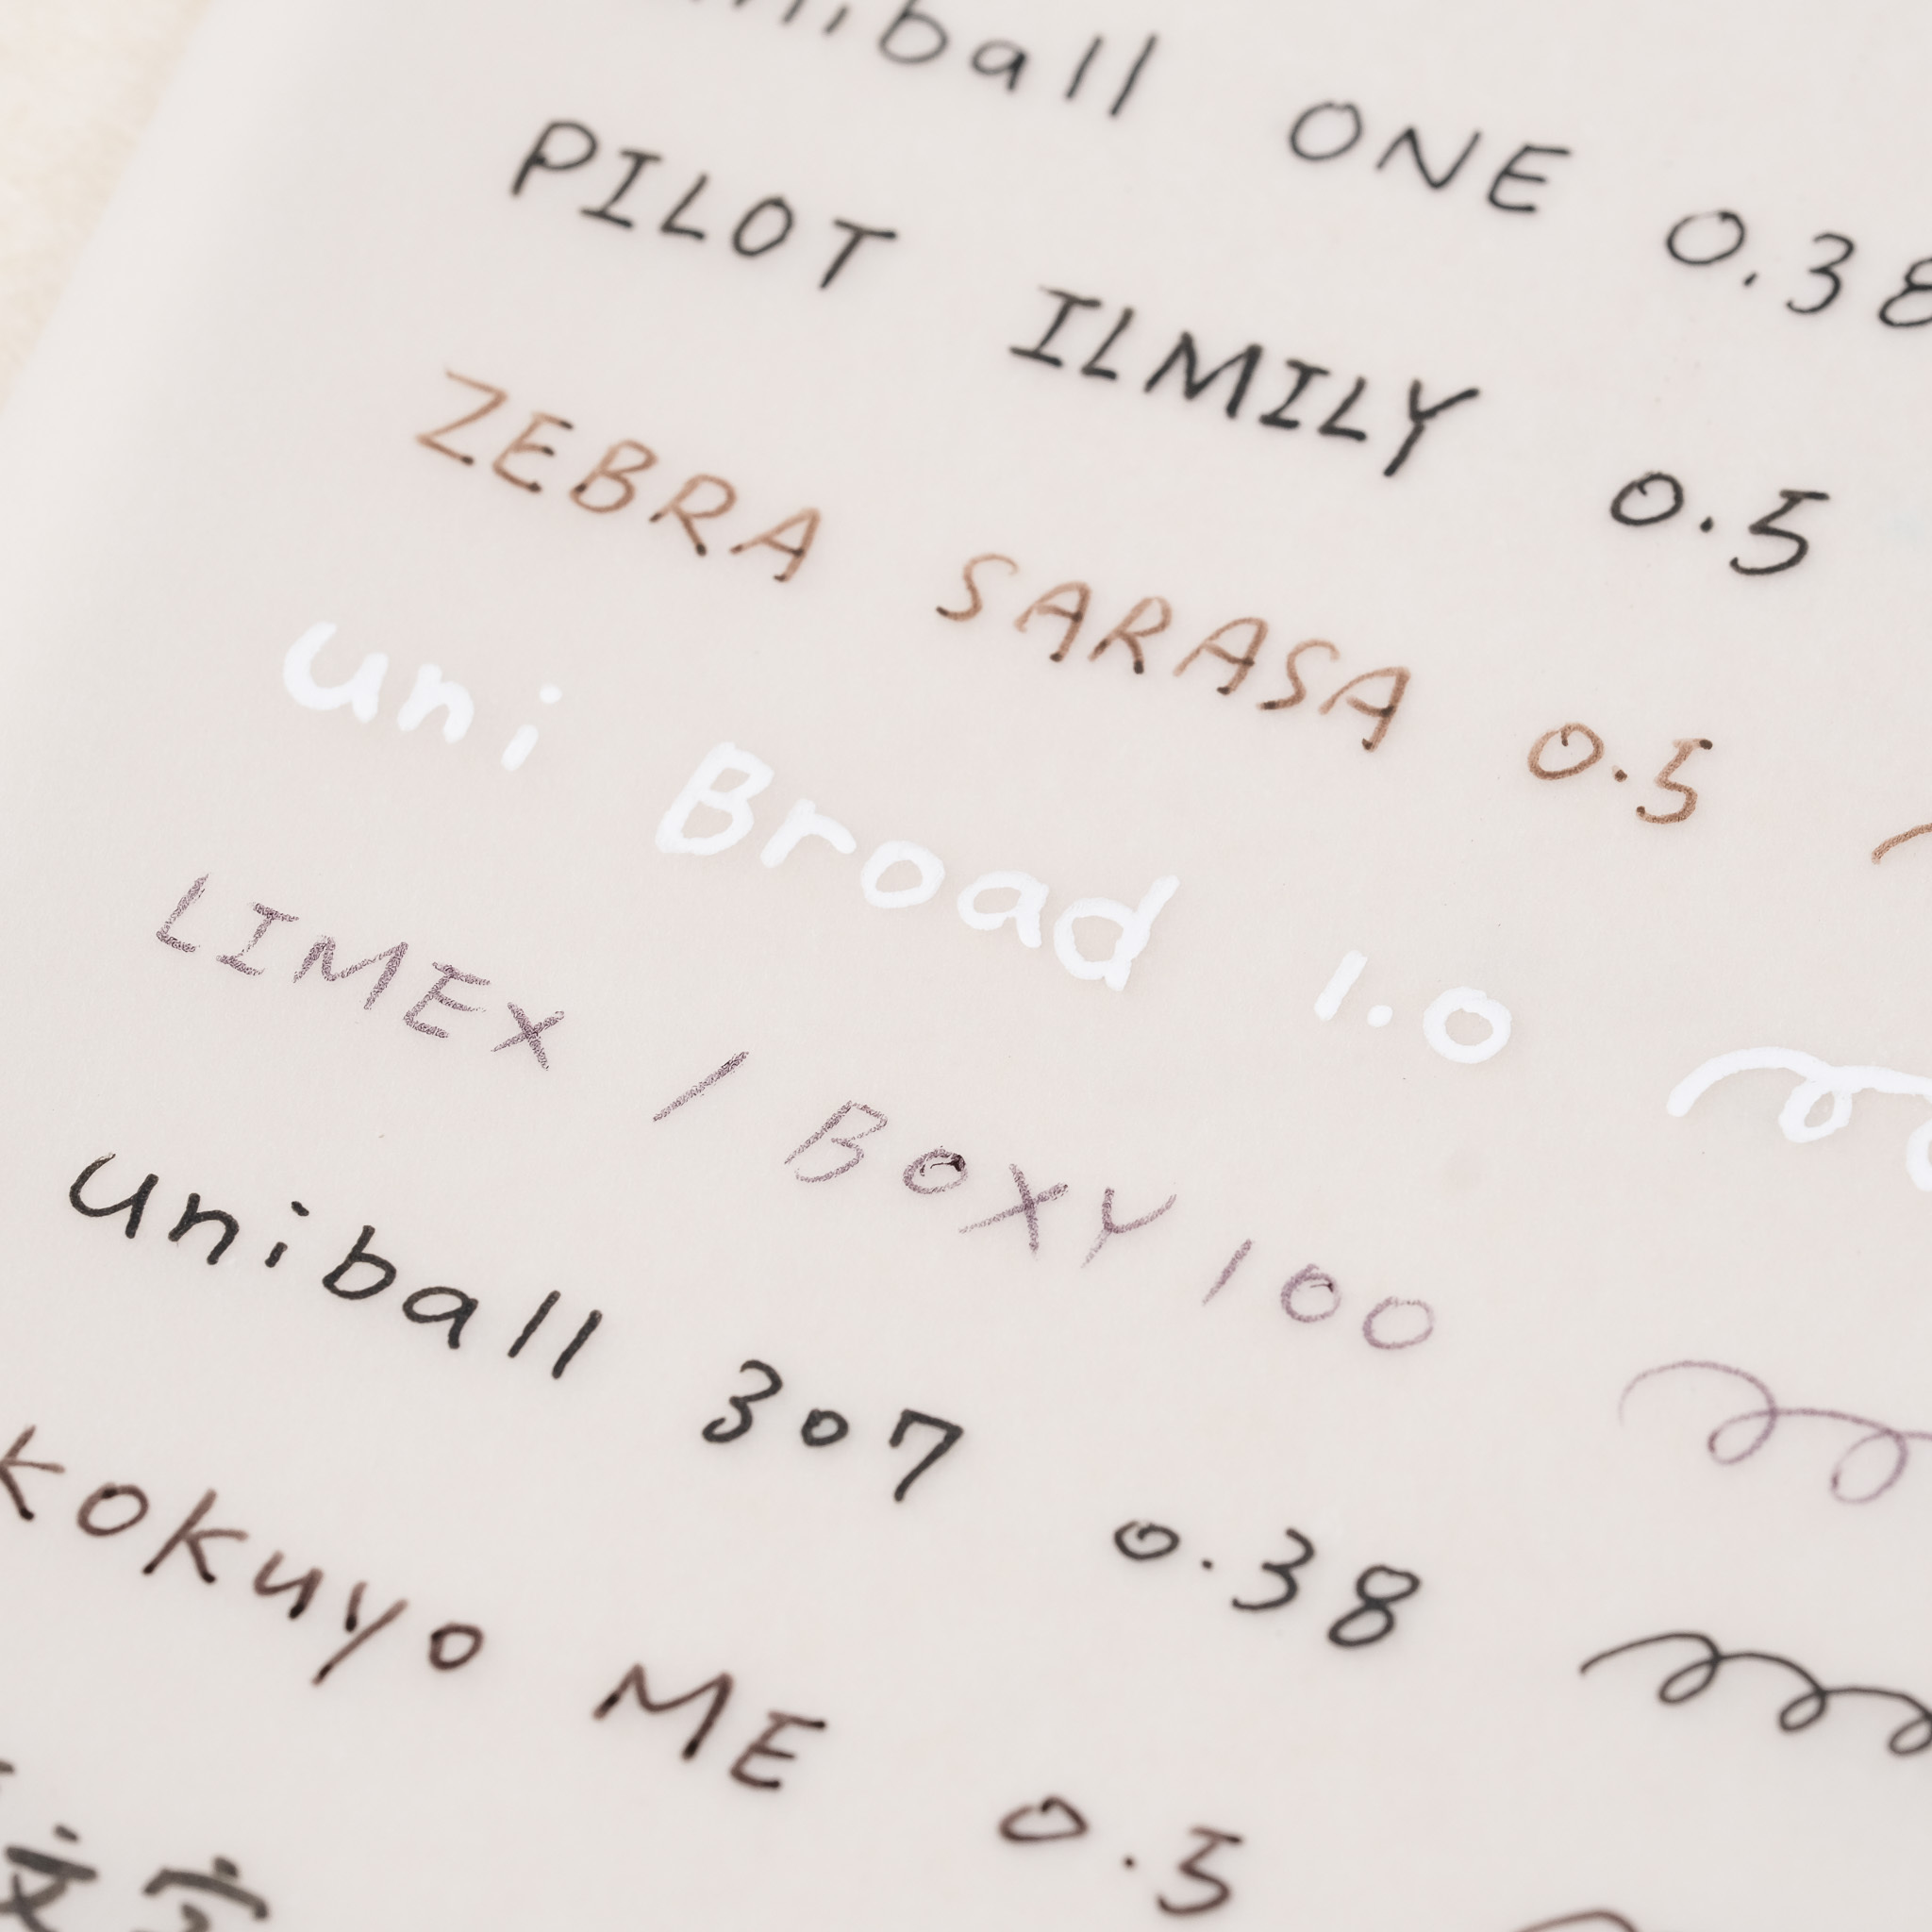 uniball ONE 0.38
PILOT ILMILY 0.5
ZEBRA SARASA 0.5
uni Broad 1.0
LIMEX / BOXY 100
uniball 307 0.38
kokuyo ME 0.5
文字